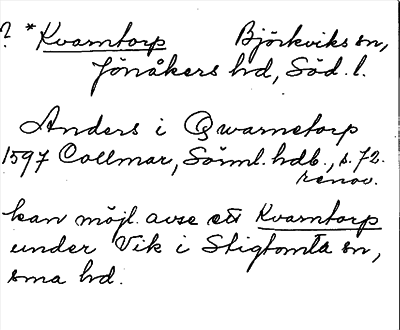 ? * Kvarntorp Björkviks sn,
Jönåkers hd, Söd. l.
Anders i Qwarnetorp
1597 Collmar, Sörml. hdb., s. 72.
renov.
kan möjl. avse ett Kvarntorp
under Vik i Stigtomta sn,
sma hd.